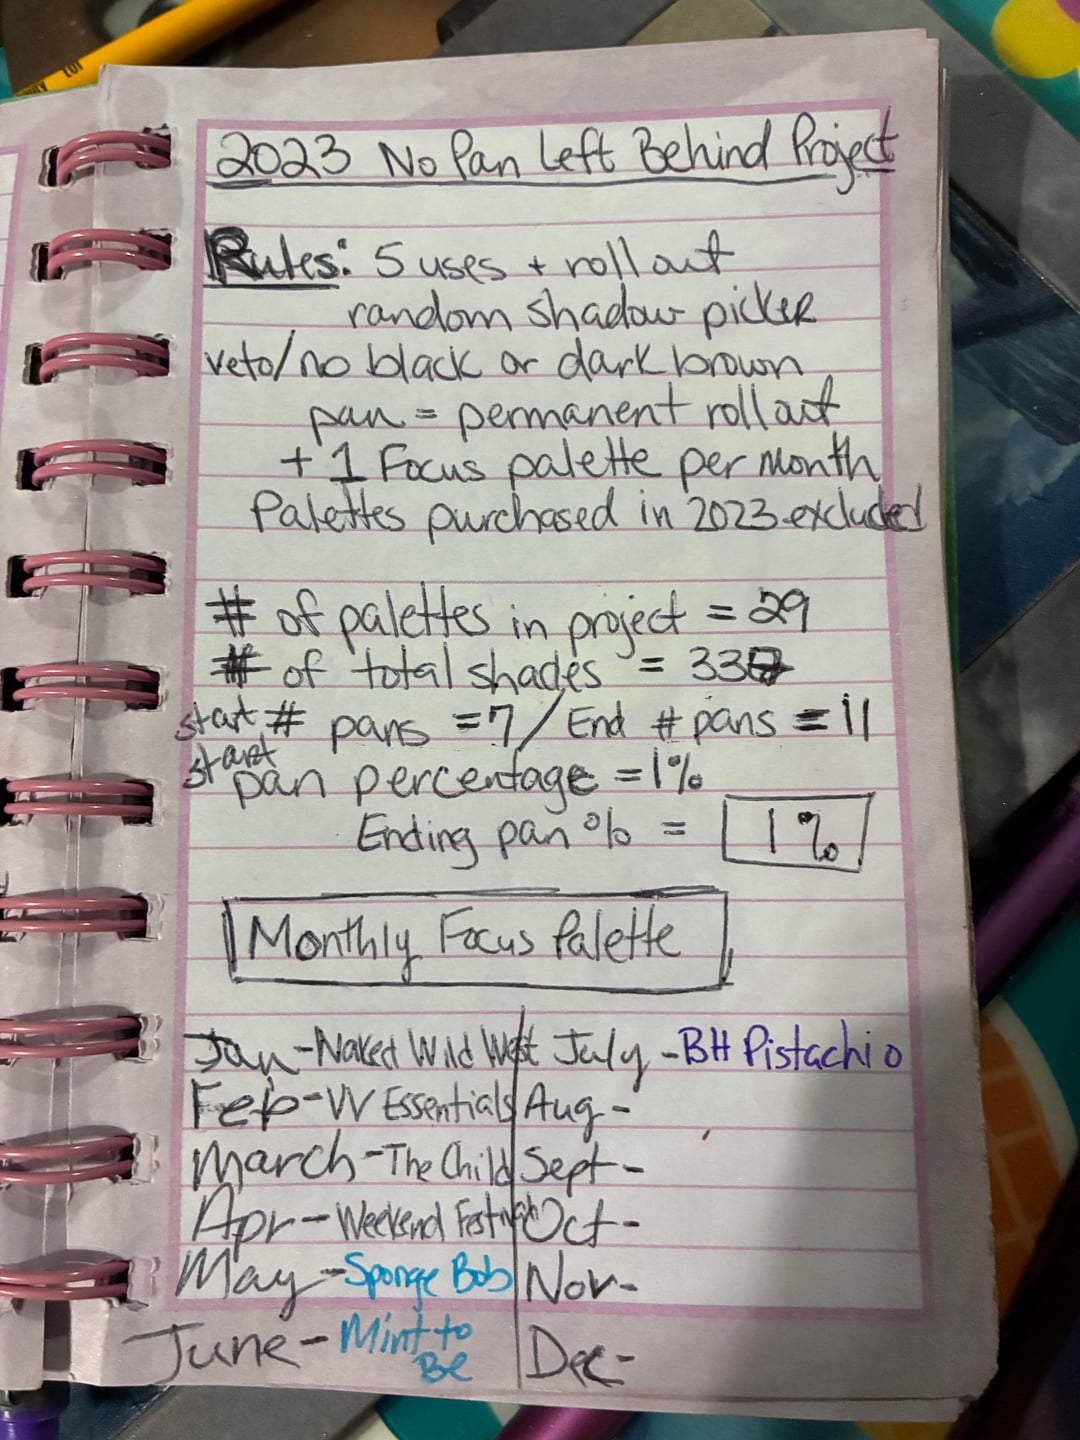 2023 No Pan Left Behind Project
Rules: 5 uses + roll out
random shadow picker
veto/no black or dark brown
pan = permanent roll out
+ 1 Focus palette per month
Palettes purchased in 2023 excluded
# of palettes in project = 29
# of total shades = 33
start # pans = 7 / End # pans = 11
start pan percentage = 1%
Ending pan % = 1%
Monthly Focus Palette
Jan - Naked Wild West July - BH Pistachio
Feb - VV Essentials Aug -
March - The Child Sept -
Apr - Weekend Festival Oct -
May - Sponge Bob Nov -
June - Mint to Dec -
Be